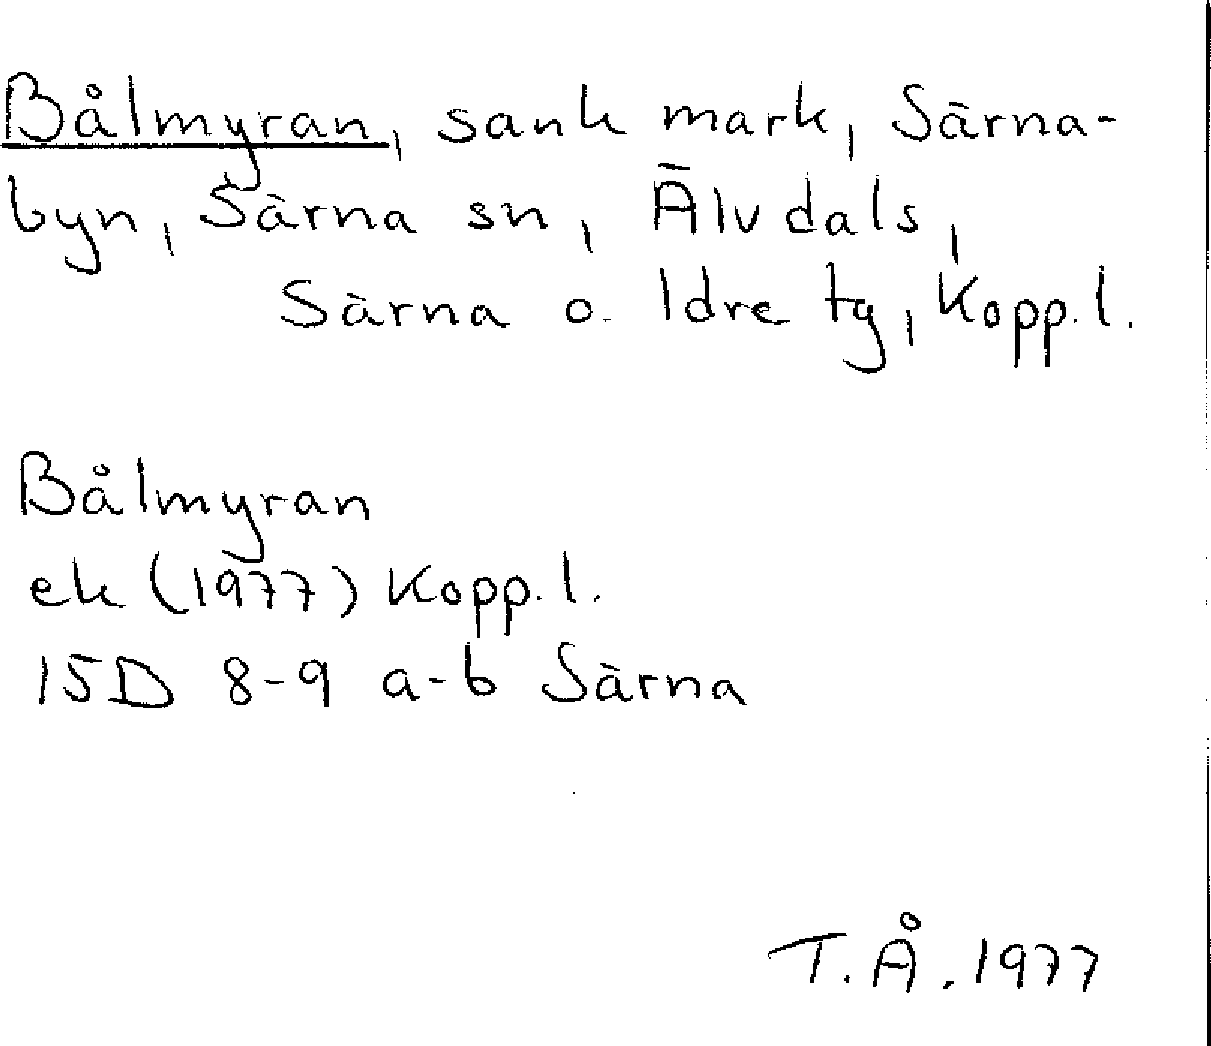 Bålmyran, sank mark, Särna-
byn, Särna sn, Älvdals,
Särna o. Idre tg, Kopp. l.
Bålmyran
ek (1977) Kopp. l.
15D 8-9 a-b Särna
T. Å. 1977